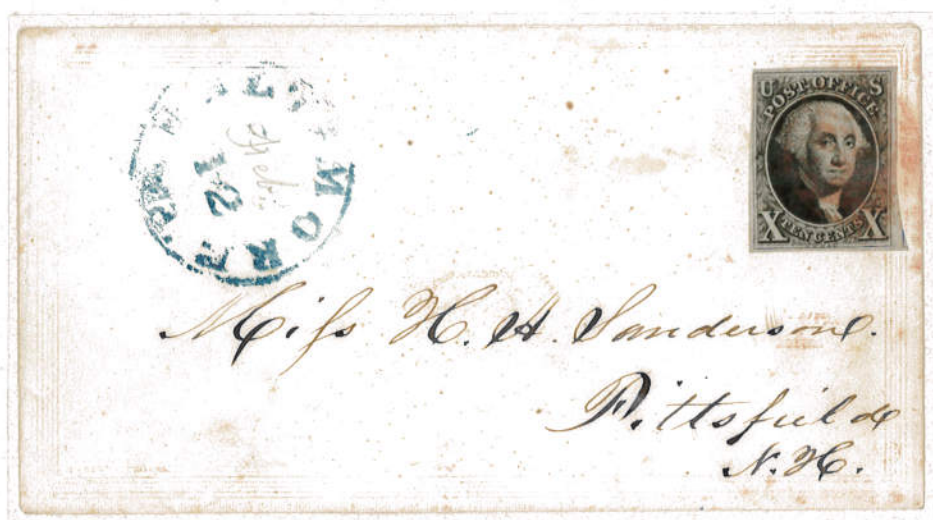 Feb
12
U S
POST OFFICE
X TEN CENTS X
Miſs H. H. Sanderson.
Pittsfield
N. H.